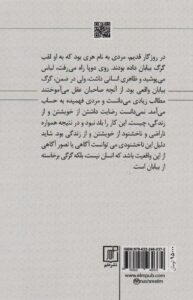 در روزگار قدیم، مردی به نام هری بود که به او لقب
گرگ بیابان داده بودند. روی دوپا راه می‌رفت، لباس
می‌پوشید و ظاهری انسانی داشت، ولی در ضمن، گرگ
بیابان واقعی بود. از آنچه صاحبان عقل می‌آموختند
مطالب زیادی می‌دانست و مردی فهمیده به حساب
می‌آمد. نمی‌دانست رضایت داشتن از خویشتن و از
زندگی، چیست. این کار را بلد نبود و در نتیجه همواره
ناراضی و ناخشنود از خویشتن و از زندگی بود. شاید
دلیل این ناخشنودی می‌توانست آگاهی یا تصور آگاهی
از این واقعیت باشد که انسان نیست بلکه گرگی برخاسته
از بیابان است.
نشر علم
www.elmpub.com